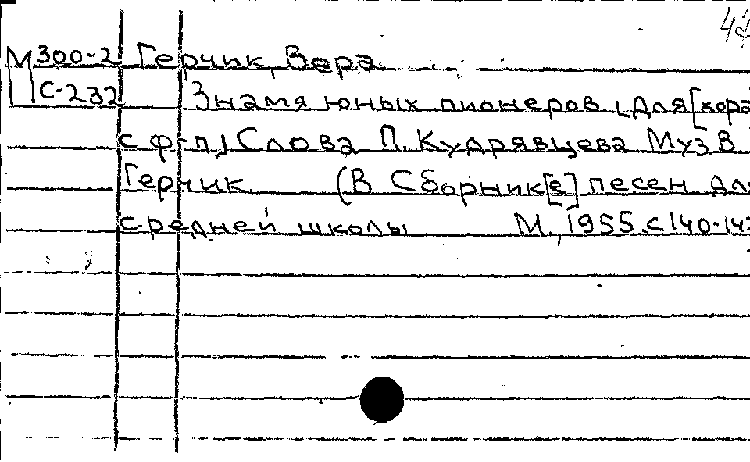 М 300-2 Герчик, Вера
С-232 Знамя юных пионеров [Для [хора
с ф-п] Слова П. Кудрявцева Муз В
Герчик (В Сборник[е] песен для
средней школы М., 1955. с 140-143